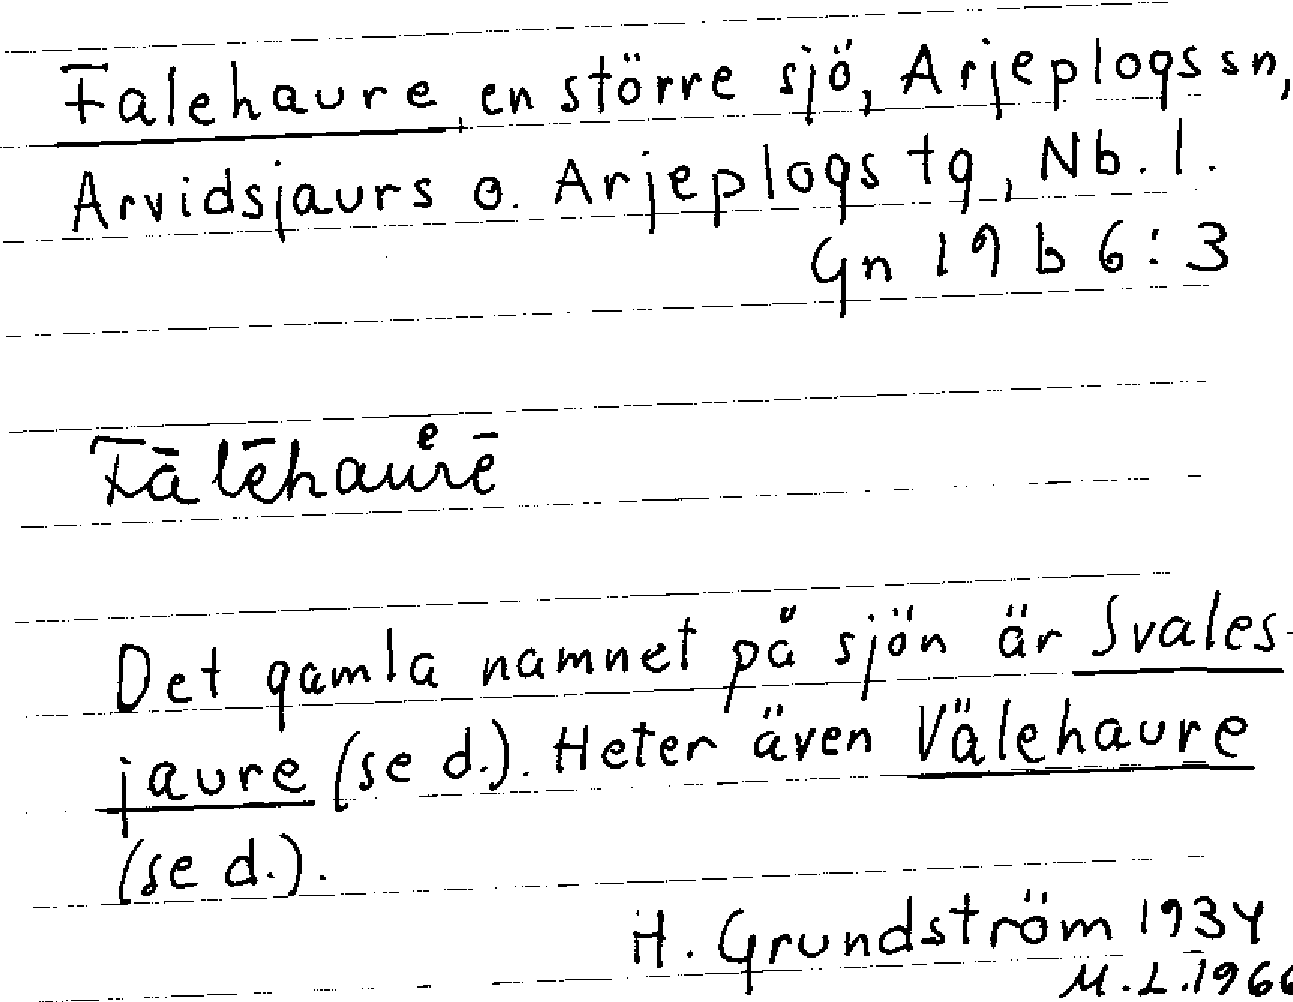 Falehaure, en större sjö, Arjeplogs sn,
Arvidsjaurs o. Arjeplogs tg, Nb. l.
Gn 19 b 6:3
Fālēhauᵉrē
Det gamla namnet på sjön är Svales-
jaure (se d.). Heter även Välehaure
(se d.).
H. Grundström 1934
M.L.1966